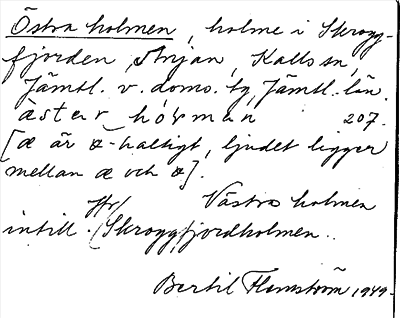 Östra holmen, holme i Skrogg-
fjorden, Anjan, Kalls sn,
Jämtl. v. doms. tg, Jämtl. län.
àstar hólman 207.
[æ är a-haltigt, ljudet ligger
mellan æ och a].
Västra holmen
intill. Skroggfjordholmen.
Bertil Flemström 1949.